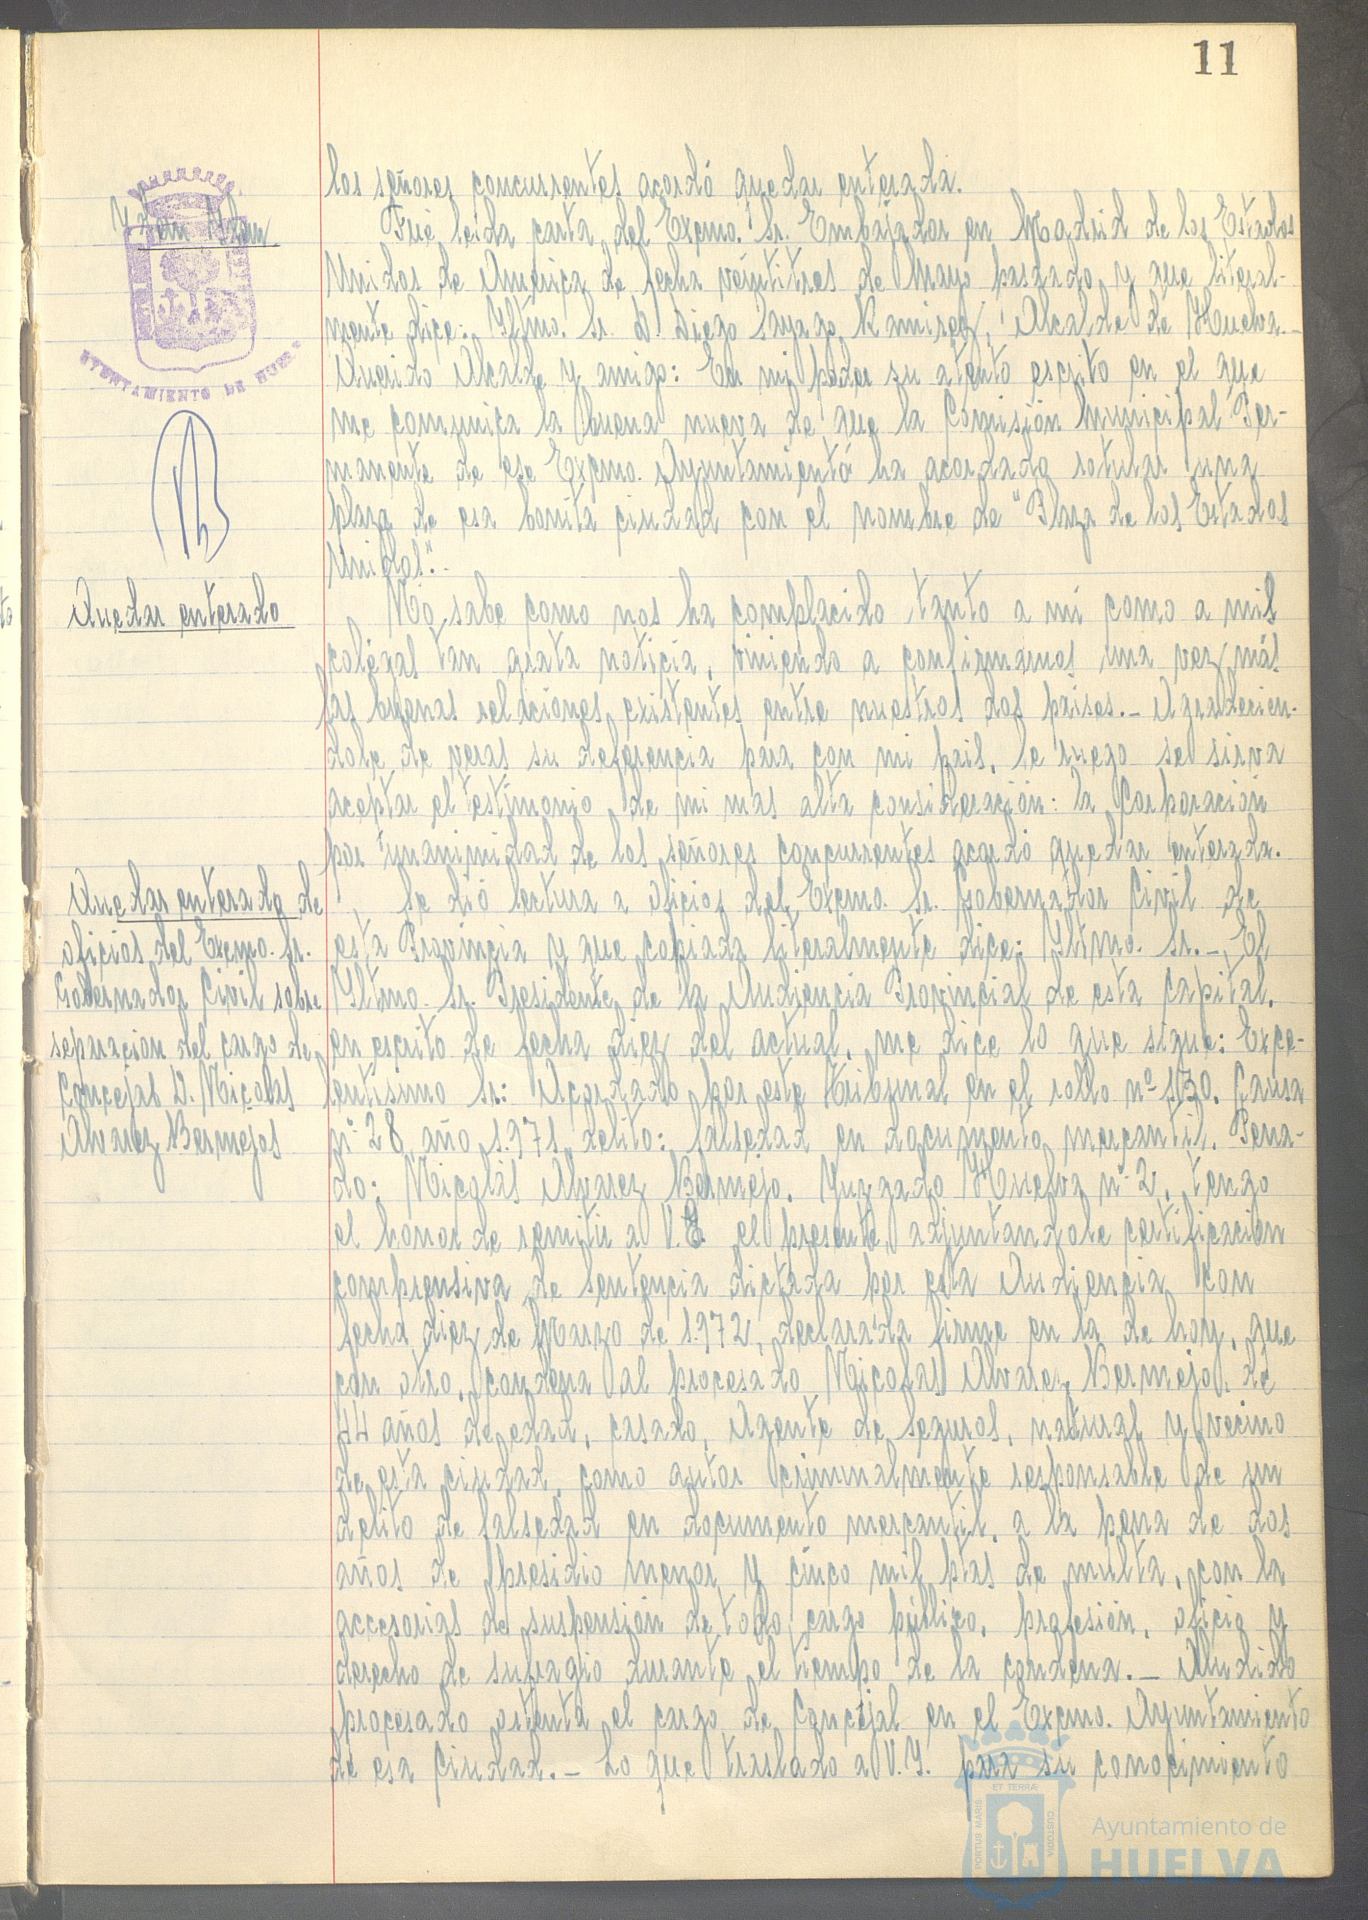 11
los señores concurrentes acordó quedar enterada.
Fué leida carta del Excmo. Sr. Embajador en Madrid de los Estados
Unidos de America de fecha veintitres de Mayo pasado y que literal-
mente dice: Yltmo. Sr. D. Diego Sayago Ramirez, Alcalde de Huelva.-
Querido Alcalde y amigo: En mi poder su atento escrito en el que
me comunica la buena nueva de que la Comisión Municipal Per-
manente de ese Excmo. Ayuntamiento ha acordado rotular una
plaza de esa bonita ciudad con el nombre de "Plaza de los Estados
Unidos".-
Quedar enterado
No sabe como nos ha complacido tanto a mi como a mis
colegas tan grata noticia, viniendo a confirmarnos una vez más
las buenas relaciones existentes entre nuestros dos paises.- Agradecien-
dole de veras su deferencia para con mi pais, le ruego se sirva
aceptar el testimonio de mi mas alta consideración: la Corporación
por unanimidad de los señores concurrentes acordó quedar enterada.
Quedar enterado de
oficios del Excmo. Sr.
Gobernador Civil sobre
separación del cargo de
Concejal D. Nicolas
Alvarez Bermejos
Se dió lectura a oficios del Excmo. Sr. Gobernador Civil de
esta Provincia y que copiada literalmente dice: Yltmo. Sr.- El
Yltmo. Sr. Presidente de la Audiencia Provincial de esta Capital,
en escrito de fecha diez del actual, me dice lo que sigue: Exce-
lentisimo Sr: Acordado por este Tribunal en el rollo nº 130. Causa
nº 28 año 1.971 delito: falsedad en documento mercantil. Pena-
do: Nicolás Alvarez Bermejo. Juzgado Huelva nº 2, tengo
el honor de remitir a V.E. el presente adjuntandole certificación
comprensiva de sentencia dictada por esta Audiencia con
fecha diez de Marzo de 1.972, declarada firme en la de hoy, que
con otro, condena al procesado Nicolas Alvarez Bermejo, de
44 años de edad, casado, Agente de Seguros, natural y vecino
de esta ciudad, como autor criminalmente responsable de un
delito de falsedad en documento mercantil, a la pena de dos
años de presidio menor y cinco mil ptas de multa, con la
accesorias de suspensión de todo cargo público, profesión, oficio y
derecho de sufragio durante el tiempo de la condena.- Aludido
procesado ostenta el cargo de Concejal en el Excmo. Ayuntamiento
de esa Ciudad.- Lo que traslado a V.Y. para su conocimiento
AYUNTAMIENTO DE HUELVA
PORTUS MARIS ET TERRÆ CUSTODIA
Ayuntamiento de
HUELVA